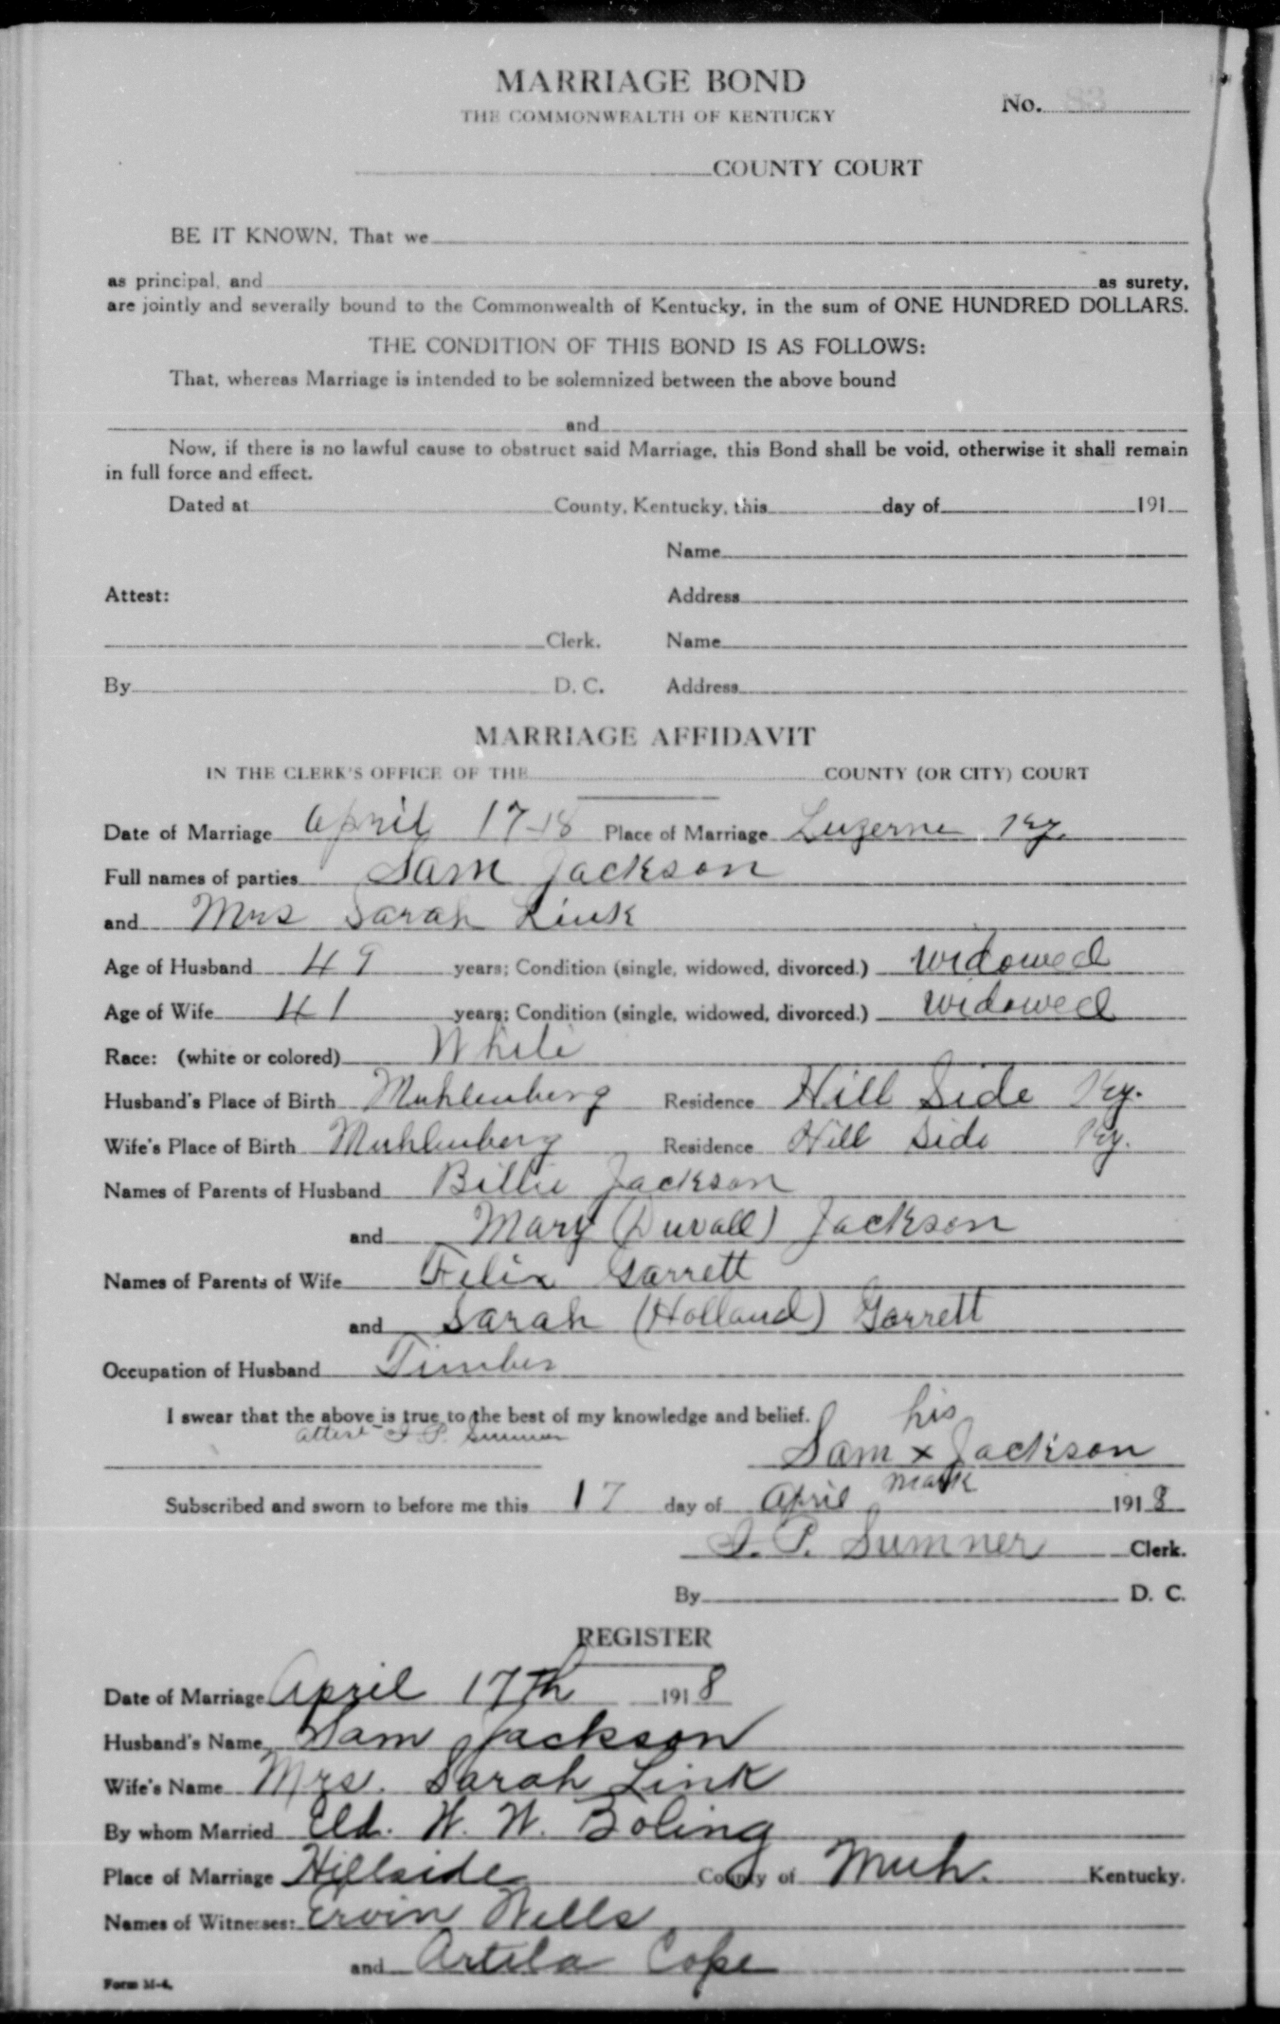 MARRIAGE BOND
THE COMMONWEALTH OF KENTUCKY
No. 83
COUNTY COURT
BE IT KNOWN, That we
as principal, and as surety,
are jointly and severally bound to the Commonwealth of Kentucky, in the sum of ONE HUNDRED DOLLARS.
THE CONDITION OF THIS BOND IS AS FOLLOWS:
That, whereas Marriage is intended to be solemnized between the above bound
and
Now, if there is no lawful cause to obstruct said Marriage, this Bond shall be void, otherwise it shall remain
in full force and effect.
Dated at County, Kentucky, this day of 191
Name
Attest: Address
Clerk. Name
By D. C. Address
MARRIAGE AFFIDAVIT
IN THE CLERK'S OFFICE OF THE COUNTY (OR CITY) COURT
Date of Marriage April 17-18 Place of Marriage Luzerne Ky.
Full names of parties Sam Jackson
and Mrs Sarah Link
Age of Husband 49 years; Condition (single, widowed, divorced.) widowed
Age of Wife 41 years; Condition (single, widowed, divorced.) widowed
Race: (white or colored) White
Husband's Place of Birth Muhlenberg Residence Hill Side Ky.
Wife's Place of Birth Muhlenberg Residence Hill Side Ky.
Names of Parents of Husband Billie Jackson
and Mary (Duvall) Jackson
Names of Parents of Wife Felix Garrett
and Sarah (Holland) Garrett
Occupation of Husband Timber
I swear that the above is true to the best of my knowledge and belief. his
attest - I. P. Sumner Sam x Jackson
mark
Subscribed and sworn to before me this 17 day of April 1918
I. P. Sumner Clerk.
By D. C.
REGISTER
Date of Marriage April 17th 1918
Husband's Name Sam Jackson
Wife's Name Mrs. Sarah Link
By whom Married Eld. W. W. Boling
Place of Marriage Hillside County of Muh. Kentucky.
Names of Witnesses: Ervin Wells
and Artila Cope
Form M-4.